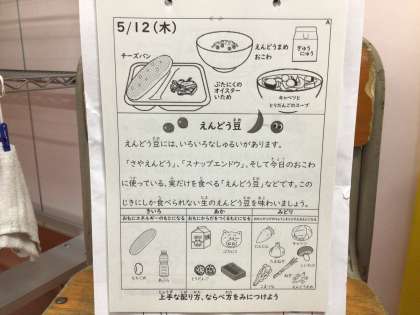 5/12(木)
A
チーズパン
えんどうまめ
おこわ
ぎゅう
にゅう
ぶたにくの
オイスター
いため
キャベツと
とりだんごのスープ
えんどう豆
えんどう豆には、いろいろなしゅるいがあります。
「さやえんどう」、「スナップエンドウ」、そして今日のおこわ
に使っている、実だけを食べる「えんどう豆」などです。この
じきにしか食べられない生のえんどう豆を味わいましょう。
きいろ
あか
みどり
おもにエネルギーのもとになる
おもにからだをつくるもとになる
もちごめ
あぶら
ぶたにく
とりにく
たまねぎ
キャベツ
ねぎ
えんどうまめ
上手な配り方、ならべ方をみにつけよう